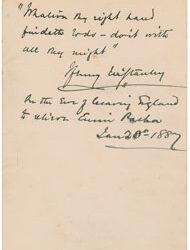 thy right hand
findeth to do – do it with
all thy might"
Henry M Stanley
On the Eve of leaving England
to relieve Emin Pasha
Jan 20th 1887